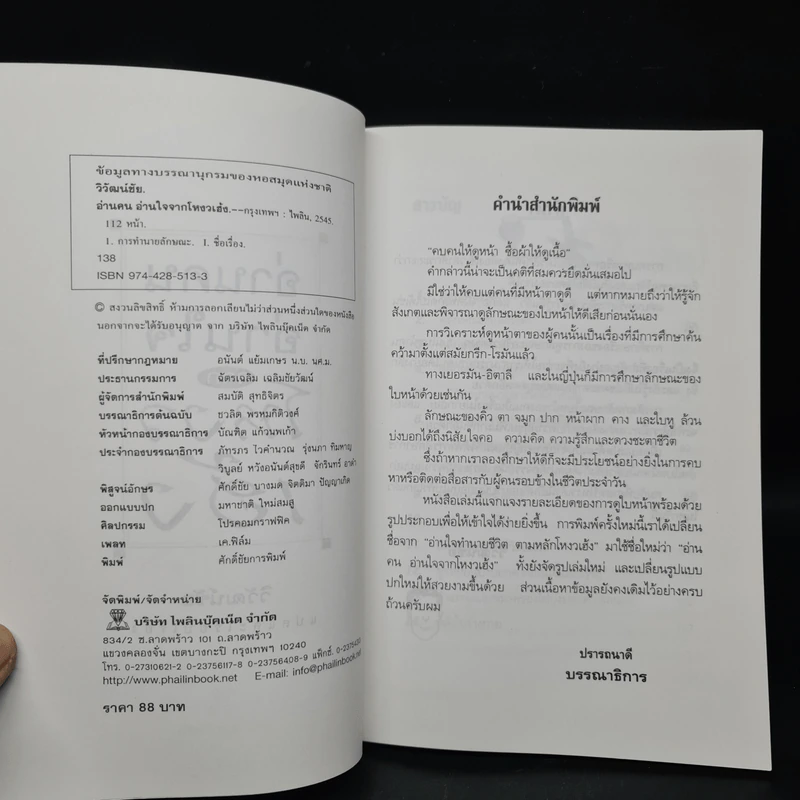 ข้อมูลทางบรรณานุกรมของหอสมุดแห่งชาติ
วิวัฒน์ชัย.
อ่านคน อ่านใจจากโหงวเฮ้ง.--กรุงเทพฯ : ไพลิน, 2545.
112 หน้า.
1. การทำนายลักษณะ. I. ชื่อเรื่อง.
138
ISBN 974-428-513-3
© สงวนลิขสิทธิ์ ห้ามการลอกเลียนไม่ว่าส่วนหนึ่งส่วนใดของหนังสือ
นอกจากจะได้รับอนุญาต จาก บริษัท ไพลินบุ๊คเน็ต จำกัด
ที่ปรึกษากฎหมาย อนันต์ แย้มเกษร น.บ. นศ.ม.
ประธานกรรมการ ฉัตรเฉลิม เฉลิมชัยวัฒน์
ผู้จัดการสำนักพิมพ์ สมบัติ สุทธิจิตร
บรรณาธิการต้นฉบับ ชวลิต พรหมกิติวงศ์
หัวหน้ากองบรรณาธิการ บัณฑิต แก้วนพเก้า
ประจำกองบรรณาธิการ ภัทรภร ไวคำนวณ รุ่งนภา ทิมหาญ
วิบูลย์ หวังอนันต์สุขดี จักรินทร์
พิสูจน์อักษร ศักดิ์ชัย บางมด จิตติมา ปัญญาเกิด
ออกแบบปก มหาชาติ ใหม่สมสู
ศิลปกรรม โปรคอมกราฟฟิค
เพลท เค.ฟิล์ม
พิมพ์ ศักดิ์ชัยการพิมพ์
จัดพิมพ์/จัดจำหน่าย
บริษัท ไพลินบุ๊คเน็ต จำกัด
834/2 ซ.ลาดพร้าว 101 ถ.ลาดพร้าว
แขวงคลองจั่น เขตบางกะปิ กรุงเทพฯ 10240
โทร. 0-27310621-2 0-23756117-8 0-23756408-9 แฟ็กส์.
http://www.phailinbook.net E-mail: info@phailinbook.net
ราคา 88 บาท
คำนำสำนักพิมพ์
"คบคนให้ดูหน้า ซื้อผ้าให้ดูเนื้อ"
คำกล่าวนี้น่าจะเป็นคติที่สมควรยึดมั่นเสมอไป
มิใช่ว่าให้คบแต่คนที่มีหน้าตาดูดี แต่หากหมายถึงว่าให้รู้จัก
สังเกตและพิจารณาดูลักษณะของใบหน้าให้ดีเสียก่อนนั่นเอง
การวิเคราะห์ดูหน้าตาของผู้คนนั้นเป็นเรื่องที่มีการศึกษาค้น
คว้ามาตั้งแต่สมัยกรีก-โรมันแล้ว
ทางเยอรมัน-อิตาลี และในญี่ปุ่นก็มีการศึกษาลักษณะของ
ใบหน้าด้วยเช่นกัน
ลักษณะของคิ้ว ตา จมูก ปาก หน้าผาก คาง และใบหู ล้วน
บ่งบอกได้ถึงนิสัยใจคอ ความคิด ความรู้สึกและดวงชะตาชีวิต
ซึ่งถ้าหากเราลองศึกษาให้ดีก็จะมีประโยชน์อย่างยิ่งในการคบ
หาหรือติดต่อสื่อสารกับผู้คนรอบข้างในชีวิตประจำวัน
หนังสือเล่มนี้แจกแจงรายละเอียดของการดูใบหน้าพร้อมด้วย
รูปประกอบเพื่อให้เข้าใจได้ง่ายยิ่งขึ้น การพิมพ์ครั้งใหม่นี้เราได้เปลี่ยน
ชื่อจาก "อ่านใจทำนายชีวิต ตามหลักโหงวเฮ้ง" มาใช้ชื่อใหม่ว่า "อ่าน
คน อ่านใจจากโหงวเฮ้ง" ทั้งยังจัดรูปเล่มใหม่ และเปลี่ยนรูปแบบ
ปกใหม่ให้สวยงามขึ้นด้วย ส่วนเนื้อหาข้อมูลยังคงเดิมไว้อย่างครบ
ถ้วนครับผม
ปรารถนาดี
บรรณาธิการ